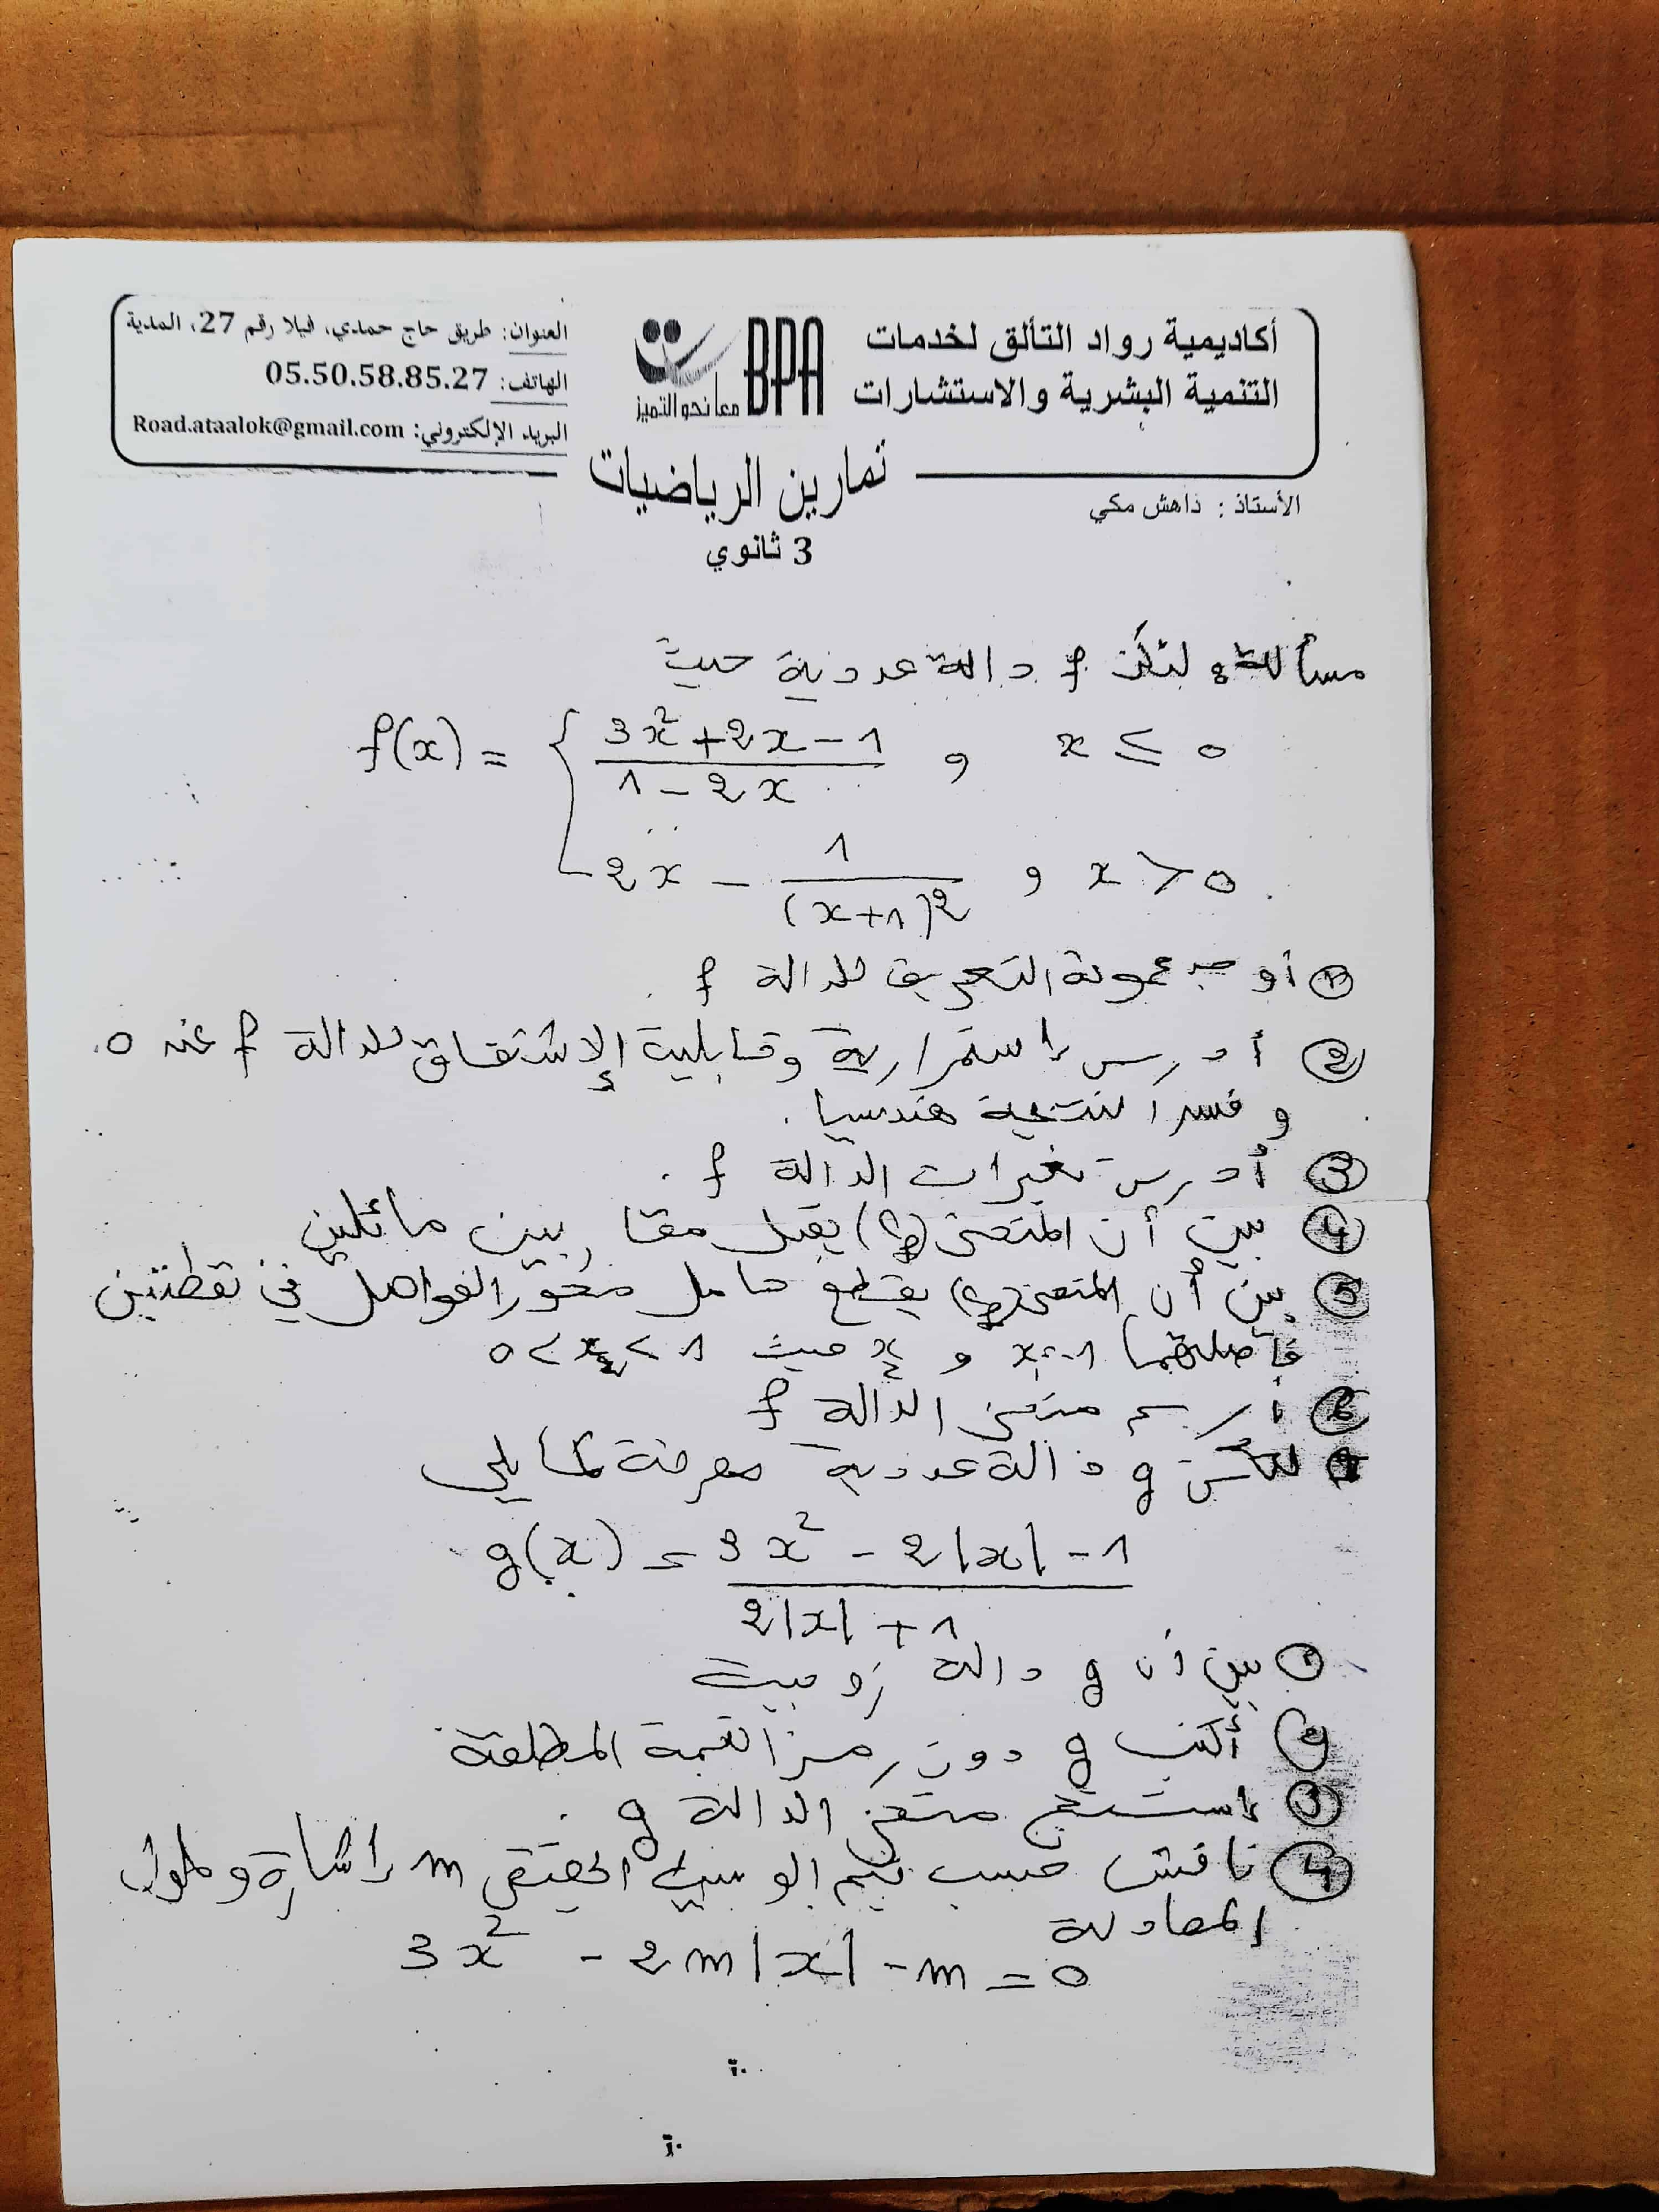 أكاديمية رواد التألق لخدمات
التنمية البشرية والاستشارات
BPA
معا نحو التميز
العنوان: طريق حاج حمدي، فيلا رقم 27، المدية
الهاتف: 05.50.58.85.27
البريد الإلكتروني: Road.ataalok@gmail.com
تمارين الرياضيات
الأستاذ : داهش مكي
3 ثانوي
مسألة: لتكن f دالة عددية حيث
f(x) = { (3x²+2x-1)/(1-2x) , x ≤ 0
2x - 1/(x+1)² , x > 0
① أوجد مجموعة التعريف للدالة f .
② أدرس إستمرارية وقابلية الإشتقاق للدالة f عند 0.
و فسر النتيجة هندسيا .
③ أدرس تغيرات الدالة f .
④ بين أن المنحنى (Cf) يقبل مقاربين مائلين
⑤ بين أن المنحنى (Cf) يقطع حامل محور الفواصل في نقطتين
فاصلتهما x₁=-1 و x₂ حيث 0<x₂<1
⑥ أرسم منحنى الدالة f
لتكن g دالة عددية معرفة كما يلي
g(x) = (3x² - 2|x| - 1)/(2|x| + 1)
① بين أن g دالة زوجية
② أكتب g دون رمز القيمة المطلقة
③ إستنتج منحنى الدالة g .
④ ناقش حسب قيم الوسيط الحقيقي m إشارة وحلول
المعادلة
3x² - 2m|x| - m = 0